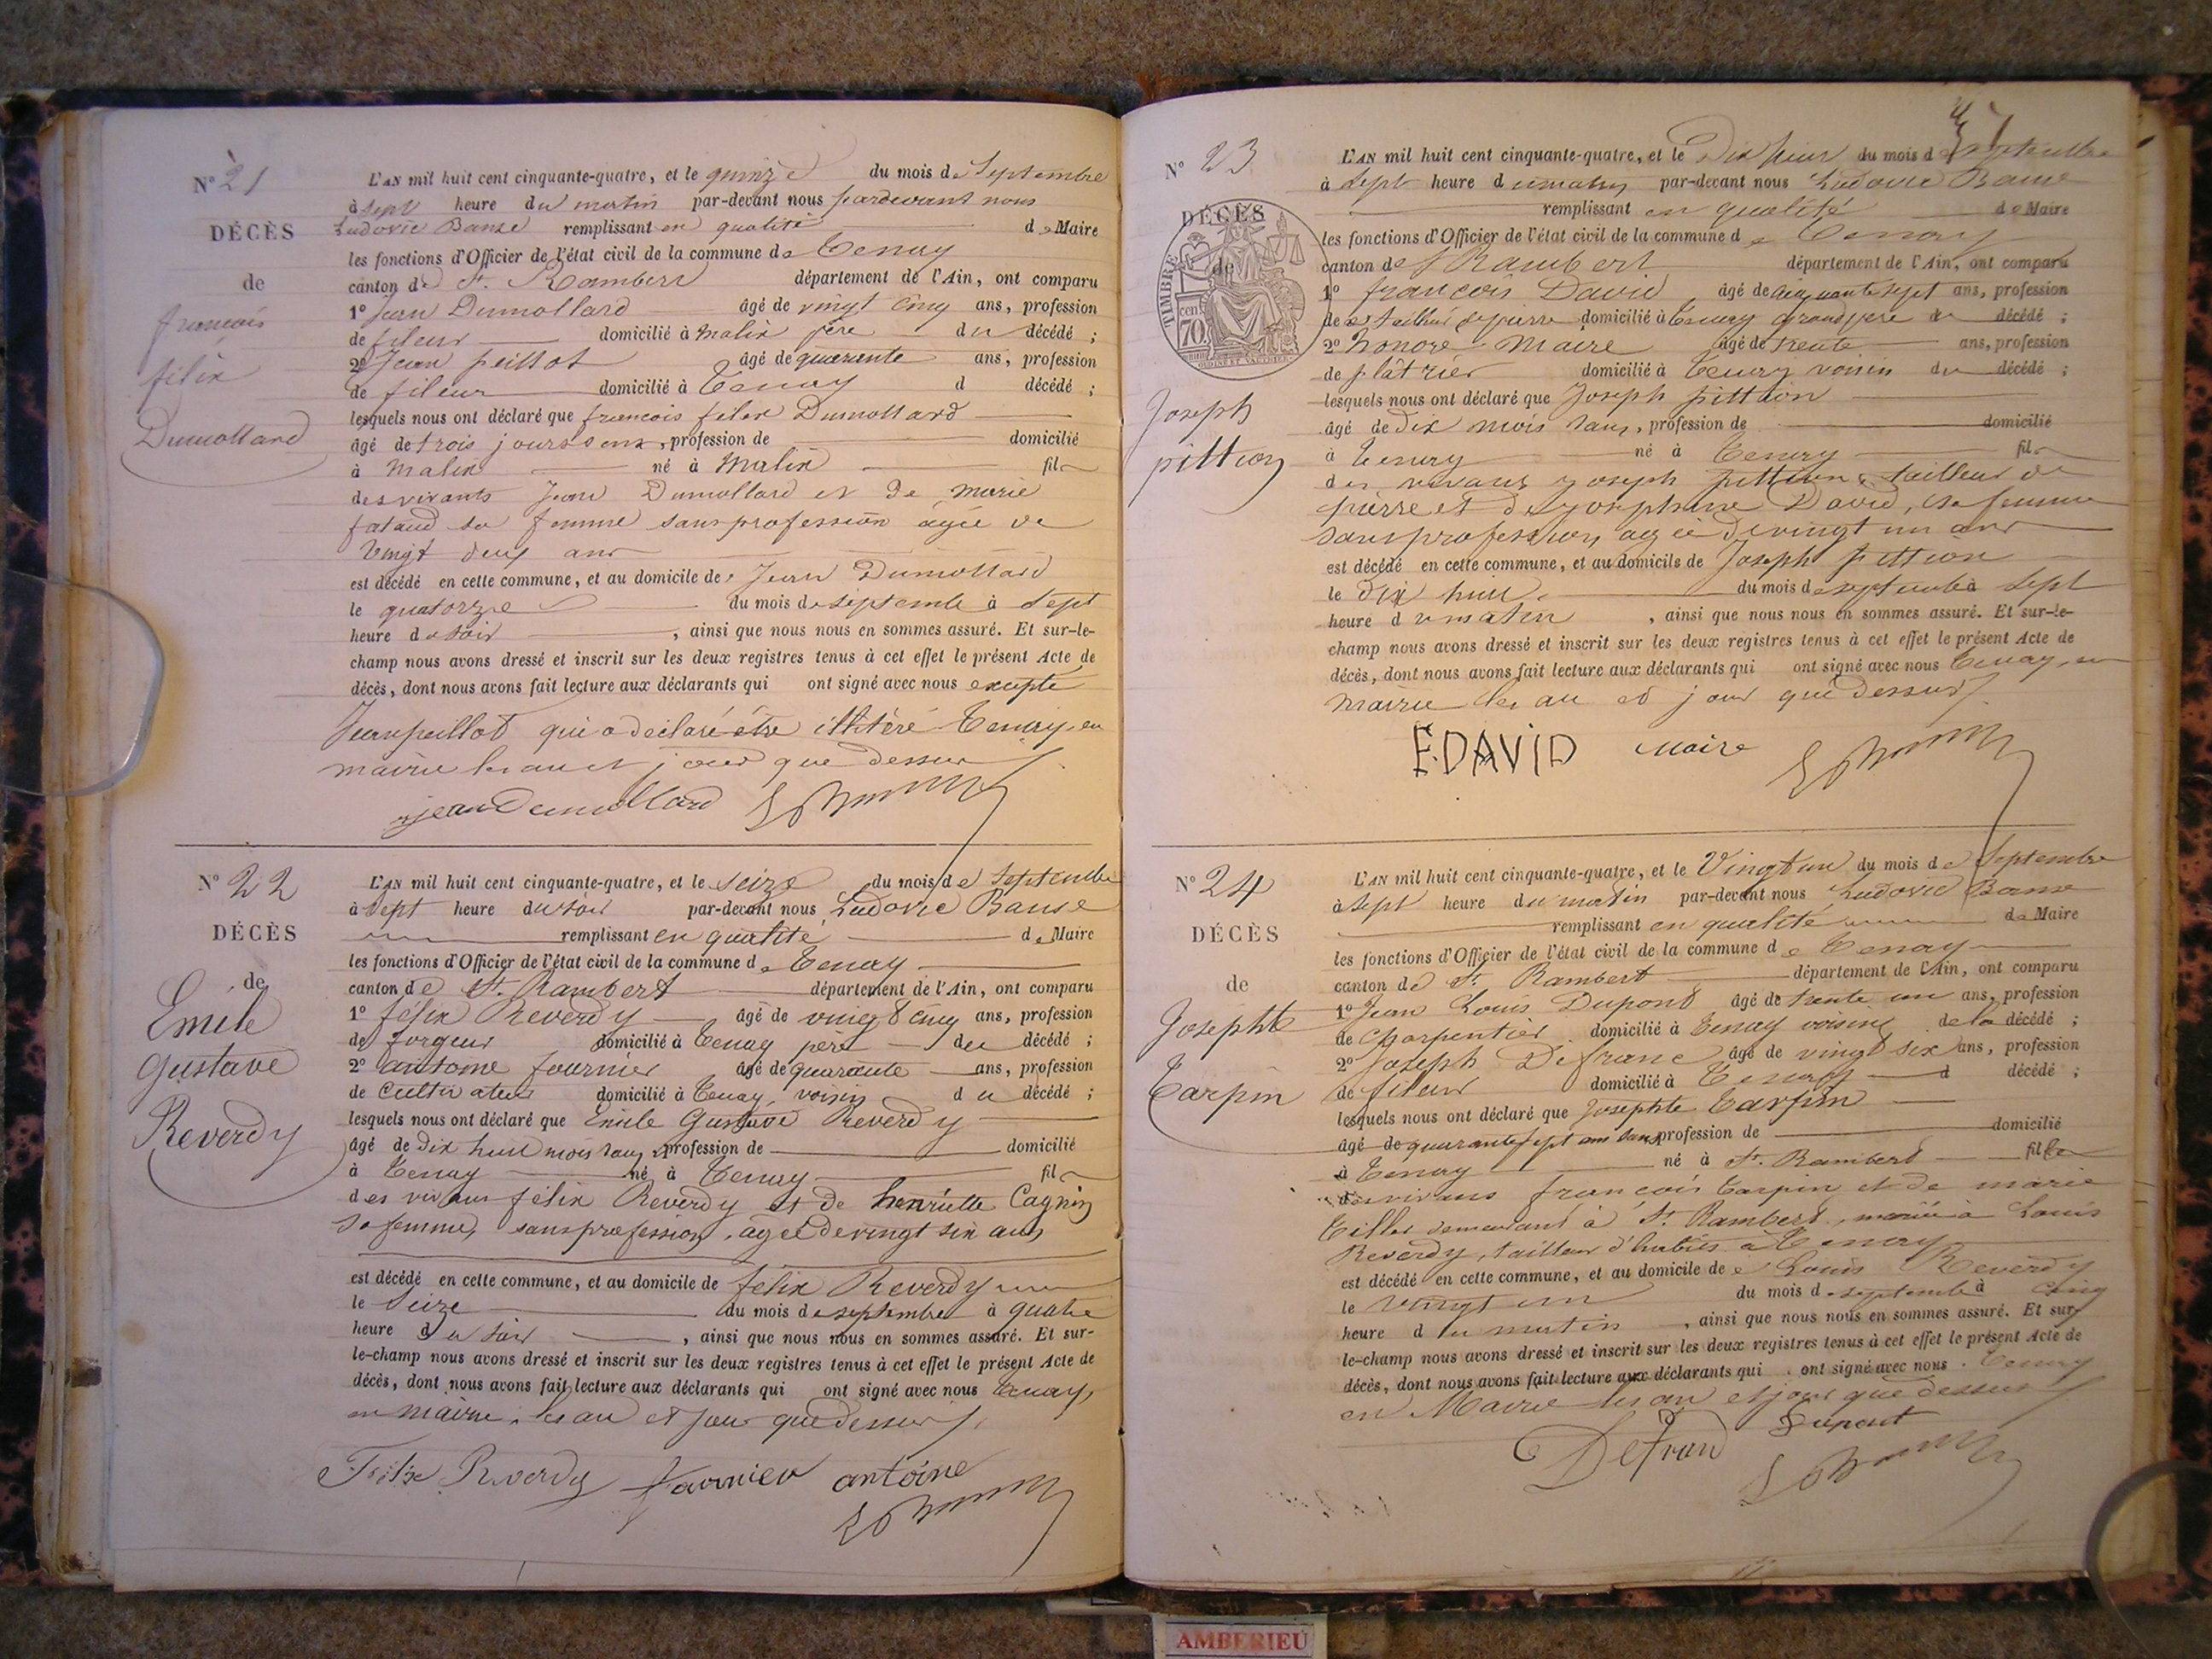 N° 21
DÉCÈS
de
francois
félix
Dumollard
L'AN mil huit cent cinquante-quatre, et le quinze du mois de Septembre
à sept heure du matin par-devant nous pardevant nous
Ludovic Banse remplissant en qualité de Maire
les fonctions d'Officier de l'état civil de la commune de Tenay
canton de St. Rambert département de l'Ain, ont comparu
1° Jean Dumollard âgé de vingt cinq ans, profession
de fileur domicilié à Malix père du décédé ;
2° Jean peillot âgé de quarante ans, profession
de fileur domicilié à Tenay d décédé ;
lesquels nous ont déclaré que francois félix Dumollard
âgé de trois jours sans, profession de domicilié
à Malix né à Malix fil
des vivants Jean Dumollard et de marie
sa femme sans profession âgée de
Vingt deux ans
est décédé en cette commune, et au domicile de Jean Dumollard
le quatorze du mois de septembre à sept
heure du soir , ainsi que nous nous en sommes assuré. Et sur-le-
champ nous avons dressé et inscrit sur les deux registres tenus à cet effet le présent Acte de
décès, dont nous avons fait lecture aux déclarants qui ont signé avec nous excepté
Jean peillot qui a déclaré être illitéré Tenay, en
mairie les an et jour que dessus
jean Dumollard
N° 22
DÉCÈS
de
Emile
Gustave
Reverdy
L'AN mil huit cent cinquante-quatre, et le seize du mois de Septembre
à sept heure du soir par-devant nous Ludovic Banse
remplissant en qualité de Maire
les fonctions d'Officier de l'état civil de la commune de Tenay
canton de St. Rambert département de l'Ain, ont comparu
1° félix Reverdy âgé de vingt cinq ans, profession
de forgeur domicilié à Tenay père du décédé ;
2° antoine fournier âgé de quarante ans, profession
de Cultivateur domicilié à Tenay, voisin du décédé ;
lesquels nous ont déclaré que Emile Gustave Reverdy
âgé de Dix huit mois sans profession de domicilié
à Tenay né à Tenay fil
des vivans félix Reverdy et de henriette Cagnin
sa femme, sans profession, agée de vingt six ans
est décédé en cette commune, et au domicile de félix Reverdy
le Seize du mois de septembre à quatre
heure du soir , ainsi que nous nous en sommes assuré. Et sur-
le-champ nous avons dressé et inscrit sur les deux registres tenus à cet effet le présent Acte de
décès, dont nous avons fait lecture aux déclarants qui ont signé avec nous Tenay,
en mairie, les an et jour que dessus
Félix Reverdy fournier antoine
N° 23
DÉCÈS
de
TIMBRE
70
cen.
Joseph
pittion
L'AN mil huit cent cinquante-quatre, et le Dix huit du mois de septembre
à sept heure du matin par-devant nous Ludovic Banse
remplissant en qualité de Maire
les fonctions d'Officier de l'état civil de la commune de Tenay
canton de St Rambert département de l'Ain, ont comparu
1° francois David âgé de cinquante sept ans, profession
de tailleur de pierre domicilié à Tenay grand père du décédé ;
2° honoré Maire âgé de trente ans, profession
de plâtrier domicilié à Tenay voisin du décédé ;
lesquels nous ont déclaré que Joseph pittion
âgé de dix mois sans, profession de domicilié
à Tenay né à Tenay fil
des vivans joseph pittion, tailleur de
pierre et de josephine David, sa femme
sans profession, agée de vingt un ans
est décédé en cette commune, et au domicile de Joseph pittion
le dix huit du mois de septembre à sept
heure du matin , ainsi que nous nous en sommes assuré. Et sur-le-
champ nous avons dressé et inscrit sur les deux registres tenus à cet effet le présent Acte de
décès, dont nous avons fait lecture aux déclarants qui ont signé avec nous Tenay, en
mairie les an et jour que dessus
F. DAVID Maire
N° 24
DÉCÈS
de
Josephte
Tarpin
L'AN mil huit cent cinquante-quatre, et le Vingt un du mois de Septembre
à sept heure du matin par-devant nous Ludovic Banse
remplissant en qualité de Maire
les fonctions d'Officier de l'état civil de la commune de Tenay
canton de St. Rambert département de l'Ain, ont comparu
1° Jean Louis Dupont âgé de trente un ans, profession
de charpentier domicilié à Tenay voisin de la décédé ;
2° Joseph Defranc âgé de vingt six ans, profession
de fileur domicilié à Tenay d décédé ;
lesquels nous ont déclaré que Josephte Tarpin
âgé de quarante sept ans sans profession de domicilié
à Tenay né à St. Rambert fille
des vivans francois Tarpin et de marie
Tiller demeurant à St. Rambert, mariée à Louis
Reverdy, tailleur d'habits à Tenay
est décédé en cette commune, et au domicile de Louis Reverdy
le vingt un du mois de septembre à cinq
heure du matin , ainsi que nous nous en sommes assuré. Et sur
le-champ nous avons dressé et inscrit sur les deux registres tenus à cet effet le présent Acte de
décès, dont nous avons fait lecture aux déclarants qui ont signé avec nous . Tenay
en Mairie les an et jour que dessus
Defranc Dupont
AMBERIEU